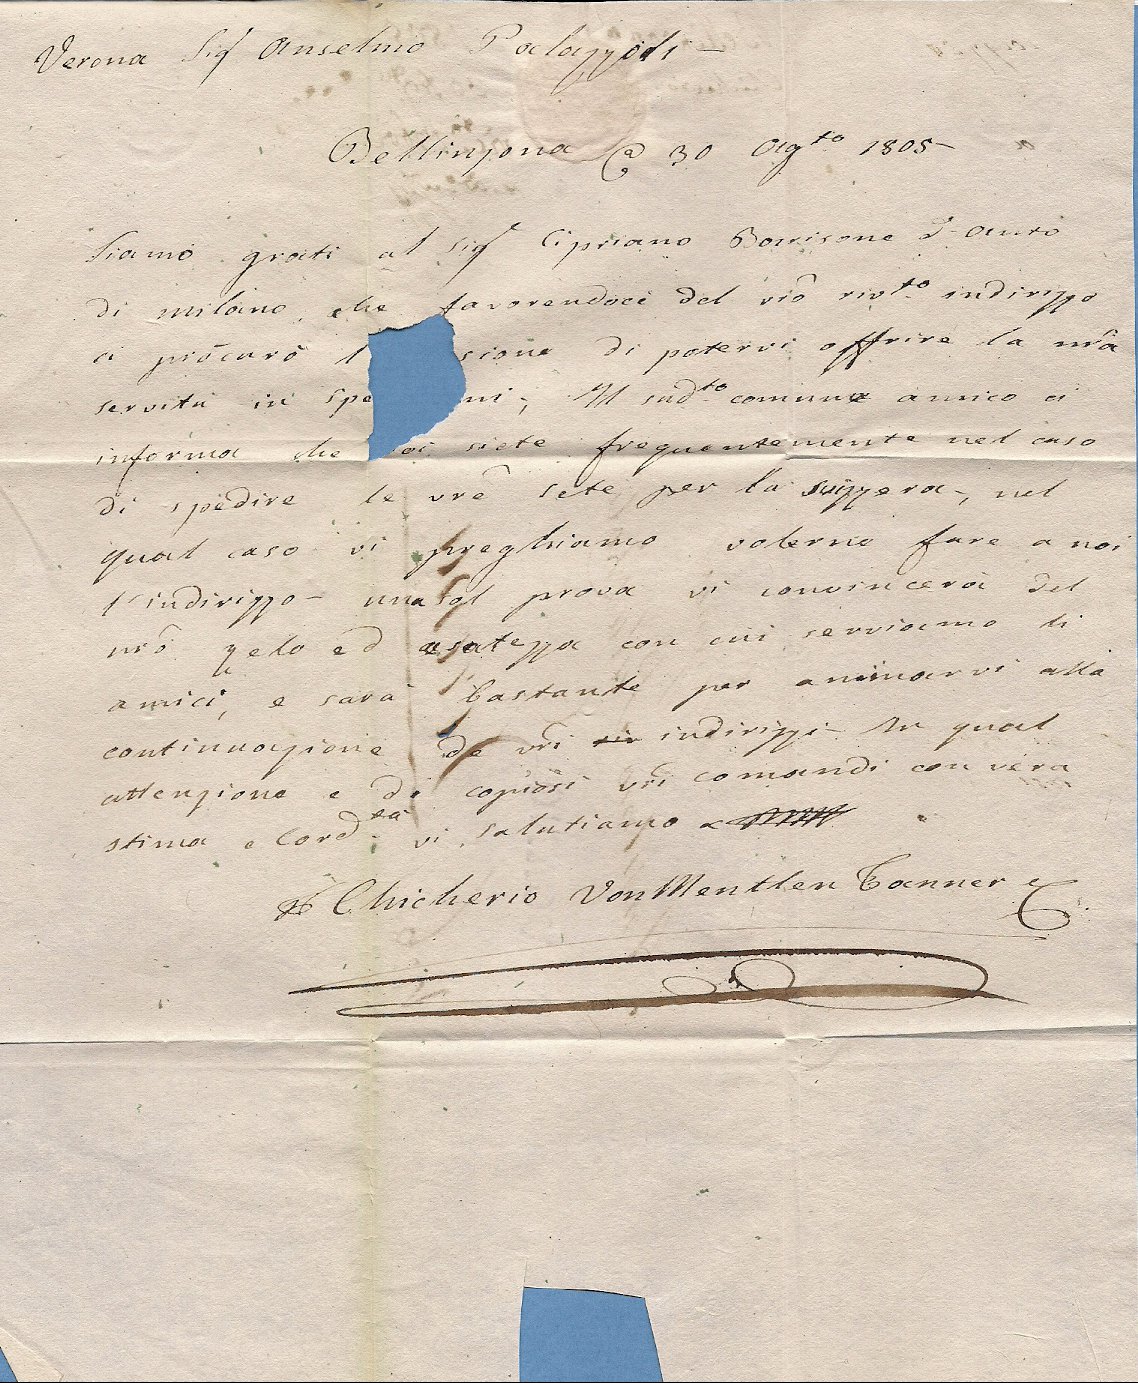 Verona Sigr Anselmo Palazzoli
Bellinzona @ 30 Agto 1805
Siamo grati al Sigr Cipriano Borrisone d'Auro
di milano, che favorendoci del vrô rivto indirizzo
ci procurò l sione di potervi offrire la nrâ
servitù in spe ni; Il sudto comune amico ci
informa che oi siete frequentemente nel caso
di spedire le vrê sete per la Svizzera, nel
qual caso vi preghiamo volerne fare a noi
l'indirizzo una sol prova vi convincerà del
nrô zelo ed esatezza con cui serviamo li
amici, e sarà bastante per animarvi alla
continuazione de vrî indirizzi In qual
attenzione e de copiosi vrî comandi con vera
stima e Cordtà vi salutiamo
Chicherio Von Mentlen Tanner C